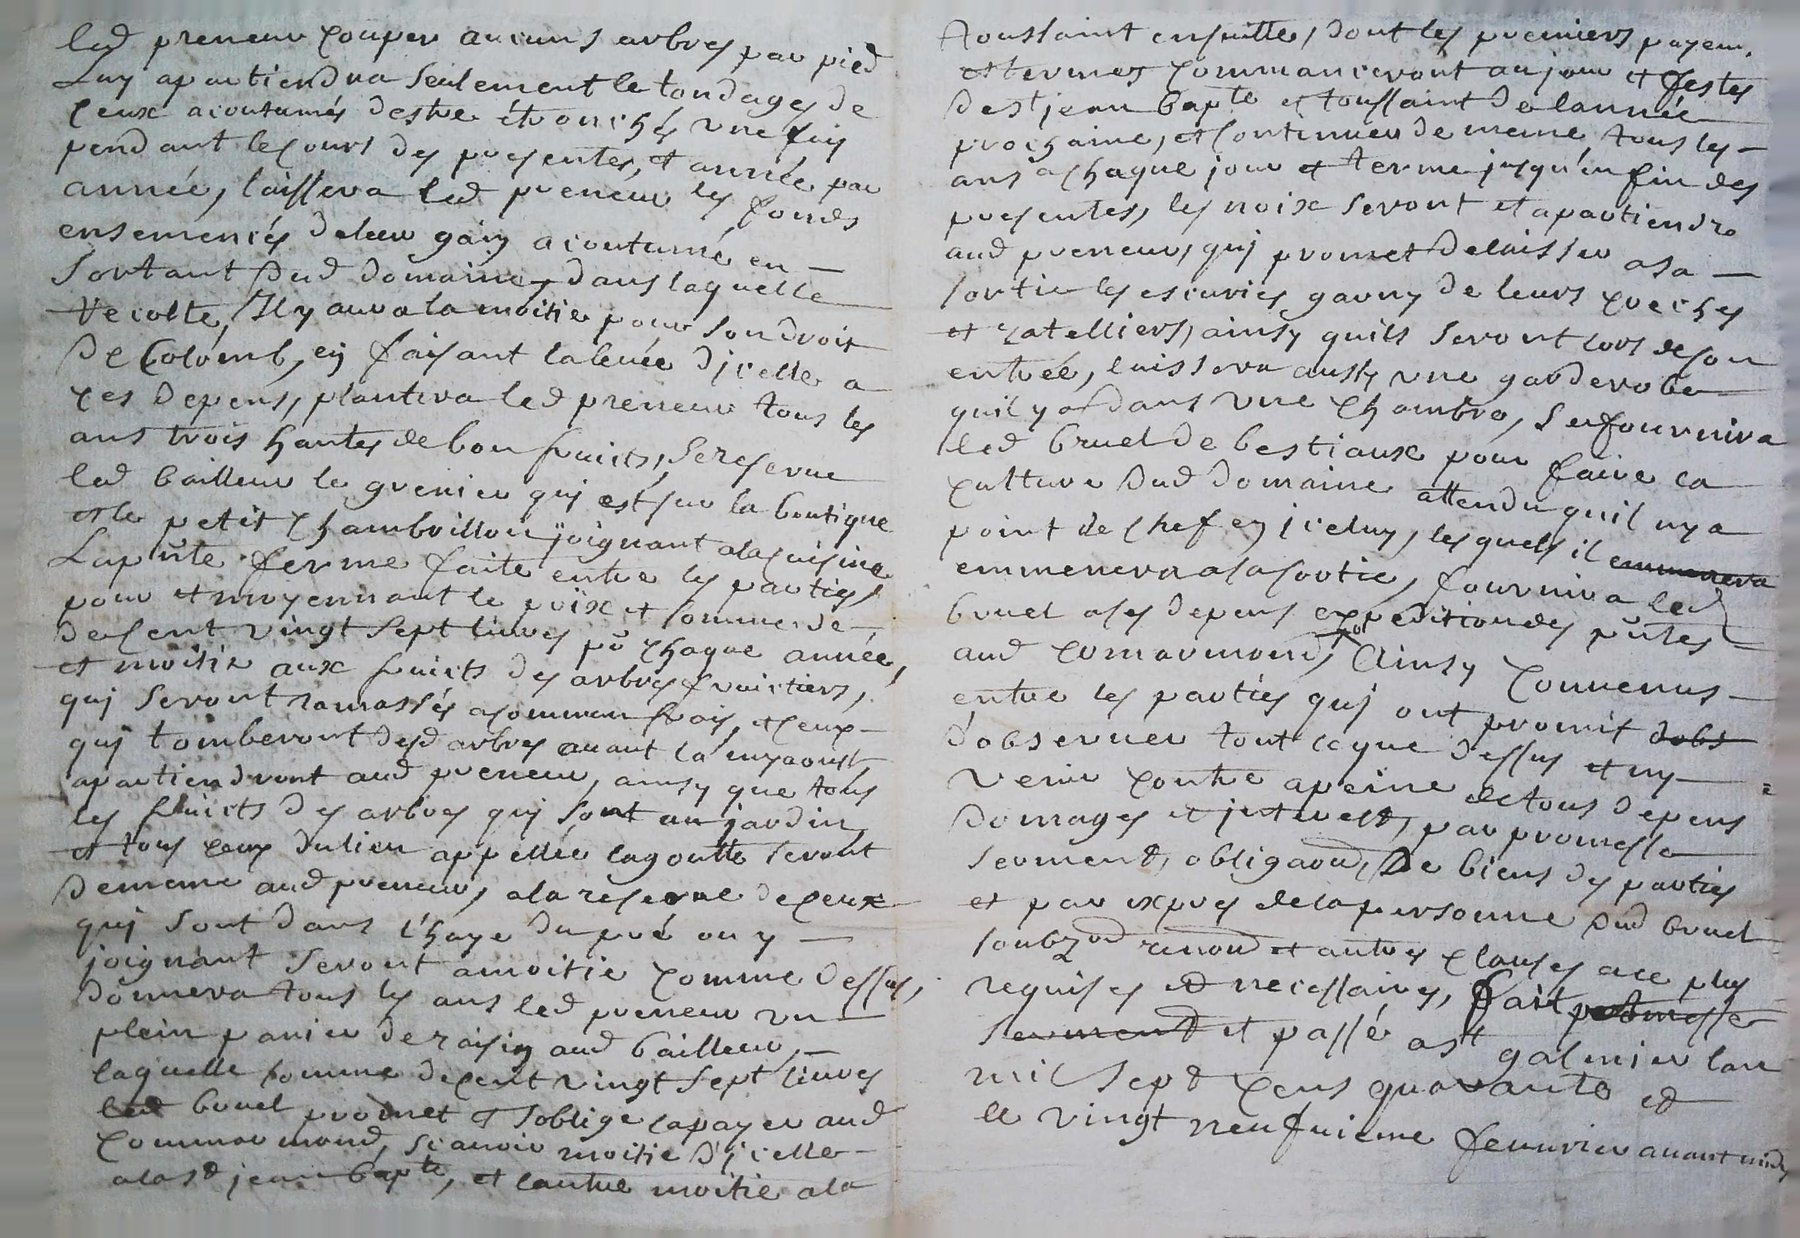 led preneur couper aucuns arbres par pied
Luy apartiendra seulement le tondages de
ceux acoutumés destre étronchés une fois
pendant le cours des presentes, et année par
année, laissera led preneur les fonds
ensemencés deleur gain acoutumé en
sortant dud domaine, dans laquelle
recolte, Il y aura la moitie pour son droit
de Colomb, en faisant la levée d'jcelle a
ces depens, plantera led preneur tous les
ans trois hantes de bon fruits, se reserve
led bailleur le grenier quj est sur la boutique
et le petit chambrillon joignant ala cuisine
La pnte ferme faite entre les parties
pour et moyennant le prix et somme de
de cent vingt sept livres pr chaque année,
et moitie aux fruits des arbres fruictiers,
quj seront ramassés acommun frais, et ceux
quj tomberont desd arbres avant la myaoust
apartiendront aud preneur, ainsy que tous
les fruicts des arbres quj sont au jardin
et tous ceux du lieu appellée lagoutte seront
de meme aud preneur, ala reserve de ceux
quj sont dans l'haye du pré ou y
joignant seront amoitie comme dessus,
donnera tous les ans led preneur un
plein panier de raisin aud bailleur,
laquelle somme de cent vingt sept livres
led bruel promet et soblige la payer aud
commarmond, scavoir moitie d'jcelle
ala st jean bapte, et lautre moitie ala
toussaint ensuitte, dont les premiers payem.
et termes commanceront au jour et festes
de st jean bapte et toussaint de lannée
prochaine, et continuer de meme, tous les
ans a chaque jour et terme jusqu'en fin des
presentes, les noix seront et apartiendro
aud preneur, quj promet delaisser asa
sortie les escuries garny de leurs creches
et ratelliers, ainsy quils seront lors de son
entrée, laissera aussy une garderobe
quil y a dans une chambre, se fournira
led bruel de bestiaux pour faire la
culture dud domaine attendu quil ny a
point de chef en jceluy, lesquels il emmenera
emmenera ala sortie, fournira led
bruel ases depens expedition des pntes
aud comarmond, Ainsy convenus
entre les parties quj ont promit dobs
d'observer tout ce que dessus et ny
venir contre apeine de tous depens
domages et jnterest, par promesse
serment, obligaon, De biens des parties
et par expres de la personne dud bruel
soubzon renon et autres clauses ace plus
requises et necessaires, fait promesse
serment et passé a st galmier lan
mil sept cens quarante et
le vingt neufvieme fevvrier avant midy